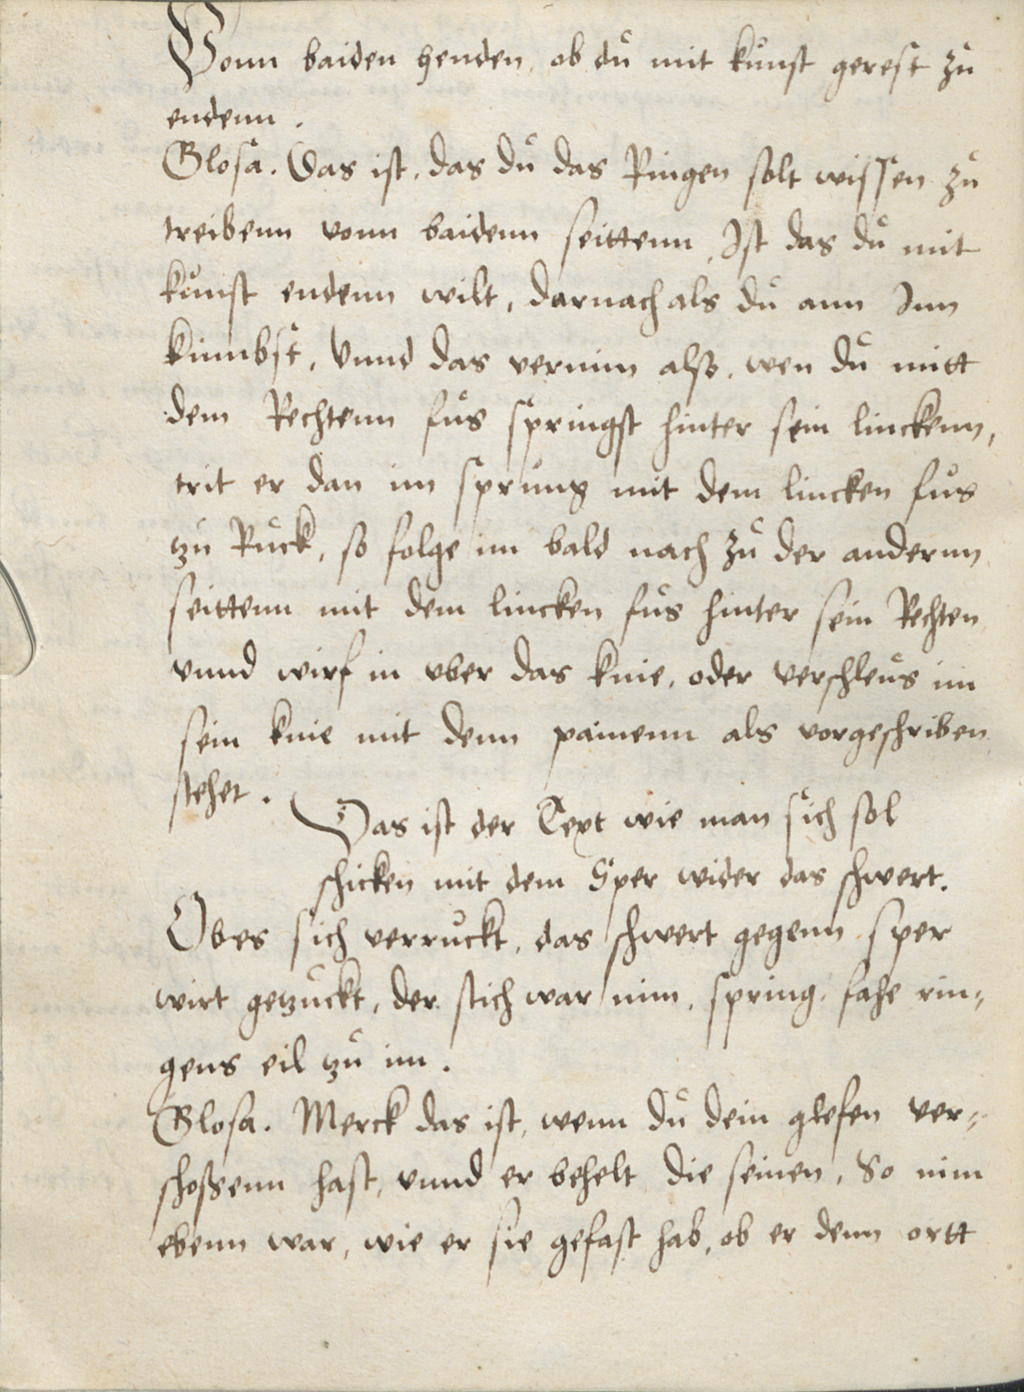 Vonn baiden henden, ob dů mit kůnst gerest zů
endenn.
Glosa. Das ist, das dů das Ringen solt wissen zů
treibenn vonn baidenn seittenn, Ist das dů mit
kůnst endenn wilt, darnach als dů ann Inn
kimbst, Vnnd das vernim also, wen dů mitt
dem Rechtenn fůs springst hinter sein linckenn,
trit er dan im sprůng mit dem lincken fůs
zů Růck, so folge im bald nach zů der andernn
seittenn mit dem lincken fůs hinter sein Rechten
vnnd wirf in vber das knie, oder verschleůs im
sein knie mit denn painenn als vorgeschriben
stehet.
Das ist der Text wie man sich sol
schicken mit dem Sper wider das schwert.
Ob es sich verrůckt, das schwert gegenn sper
wirt gezůckt, der stich war nim, spring, fahe rin=
gens eil zů im.
Glosa. Merck das ist, wenn dů dein glefen ver=
schossenn hast, vnnd er behelt die seinen, So nim
ebenn war, wie er sie gefast hab, ob er denn ortt